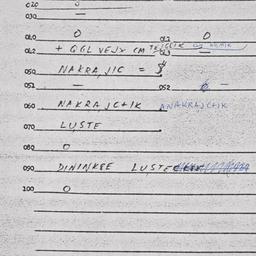 020
030 —
040 0 041 0
042 + GGL VEJX CM 043 —
050 NAKRAJIC =
051 — 052 —
060 NAKRAJC+IK ANAKRAJCHIK
070 LUSTE
080 0
090 DININKEE LUSTE
100 0